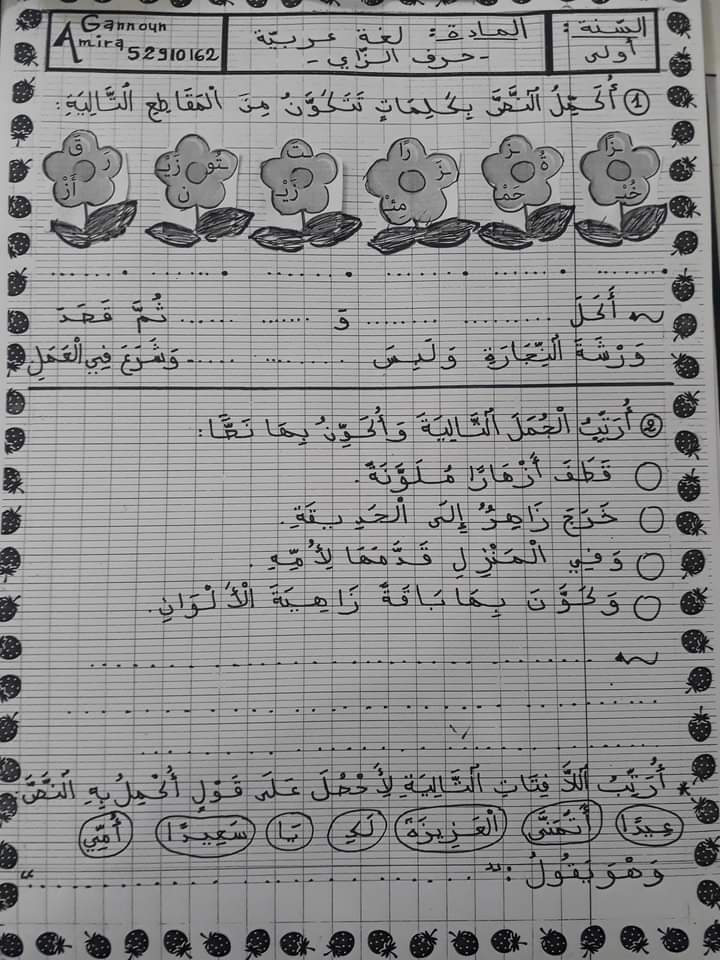 السّنة: أولى
المادة: لغة عربيّة
- حرف الزّاي -
Gannoun
Amira 52910162
① أُكَمِّلُ النَّصَّ بِكَلِمَاتٍ تَتَكَوَّنُ مِنَ الْمَقَاطِعِ التَّالِيَةِ:
زًا خُبْ
زَ ةُ حَمْ
رًا زَ مِئْ
تَ زَيْ
تُو زَيْ نِ
قَ رَ أَزْ
~ أَكَلَ .......... وَ .......... ثُمَّ قَصَدَ
وَرْشَةَ النِّجَارَةِ وَلَبِسَ .......... وَشَرَعَ فِي الْعَمَلِ
② أُرَتِّبُ الْجُمَلَ التَّالِيَةَ وَأُكَوِّنُ بِهَا نَصًّا:
قَطَفَ أَزْهَارًا مُلَوَّنَةً.
خَرَجَ زَاهِرٌ إِلَى الْحَدِيقَةِ.
وَفِي الْمَنْزِلِ قَدَّمَهَا لِأُمِّهِ.
وَكَوَّنَ بِهَا بَاقَةً زَاهِيَةَ الْأَلْوَانِ.
* أُرَتِّبُ اللَّافِتَاتِ التَّالِيَةِ لِأَحْصُلَ عَلَى قَوْلٍ أُكْمِلُ بِهِ النَّصَّ.
عِيدًا أَتَمَنَّى الْعَزِيزَةَ لَكِ يَا سَعِيدًا أُمِّي
وَهْوَ يَقُولُ: "..............."